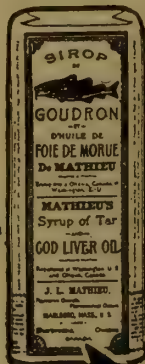 SIROP
DU
GOUDRON
ET
D'HUILE DE
FOIE DE MORUE
De MATHIEU
MATHIEU'S
Syrup of Tar
AND
COD LIVER OIL
J. L. MATHIEU,
MARLBORO, MASS., U. S.